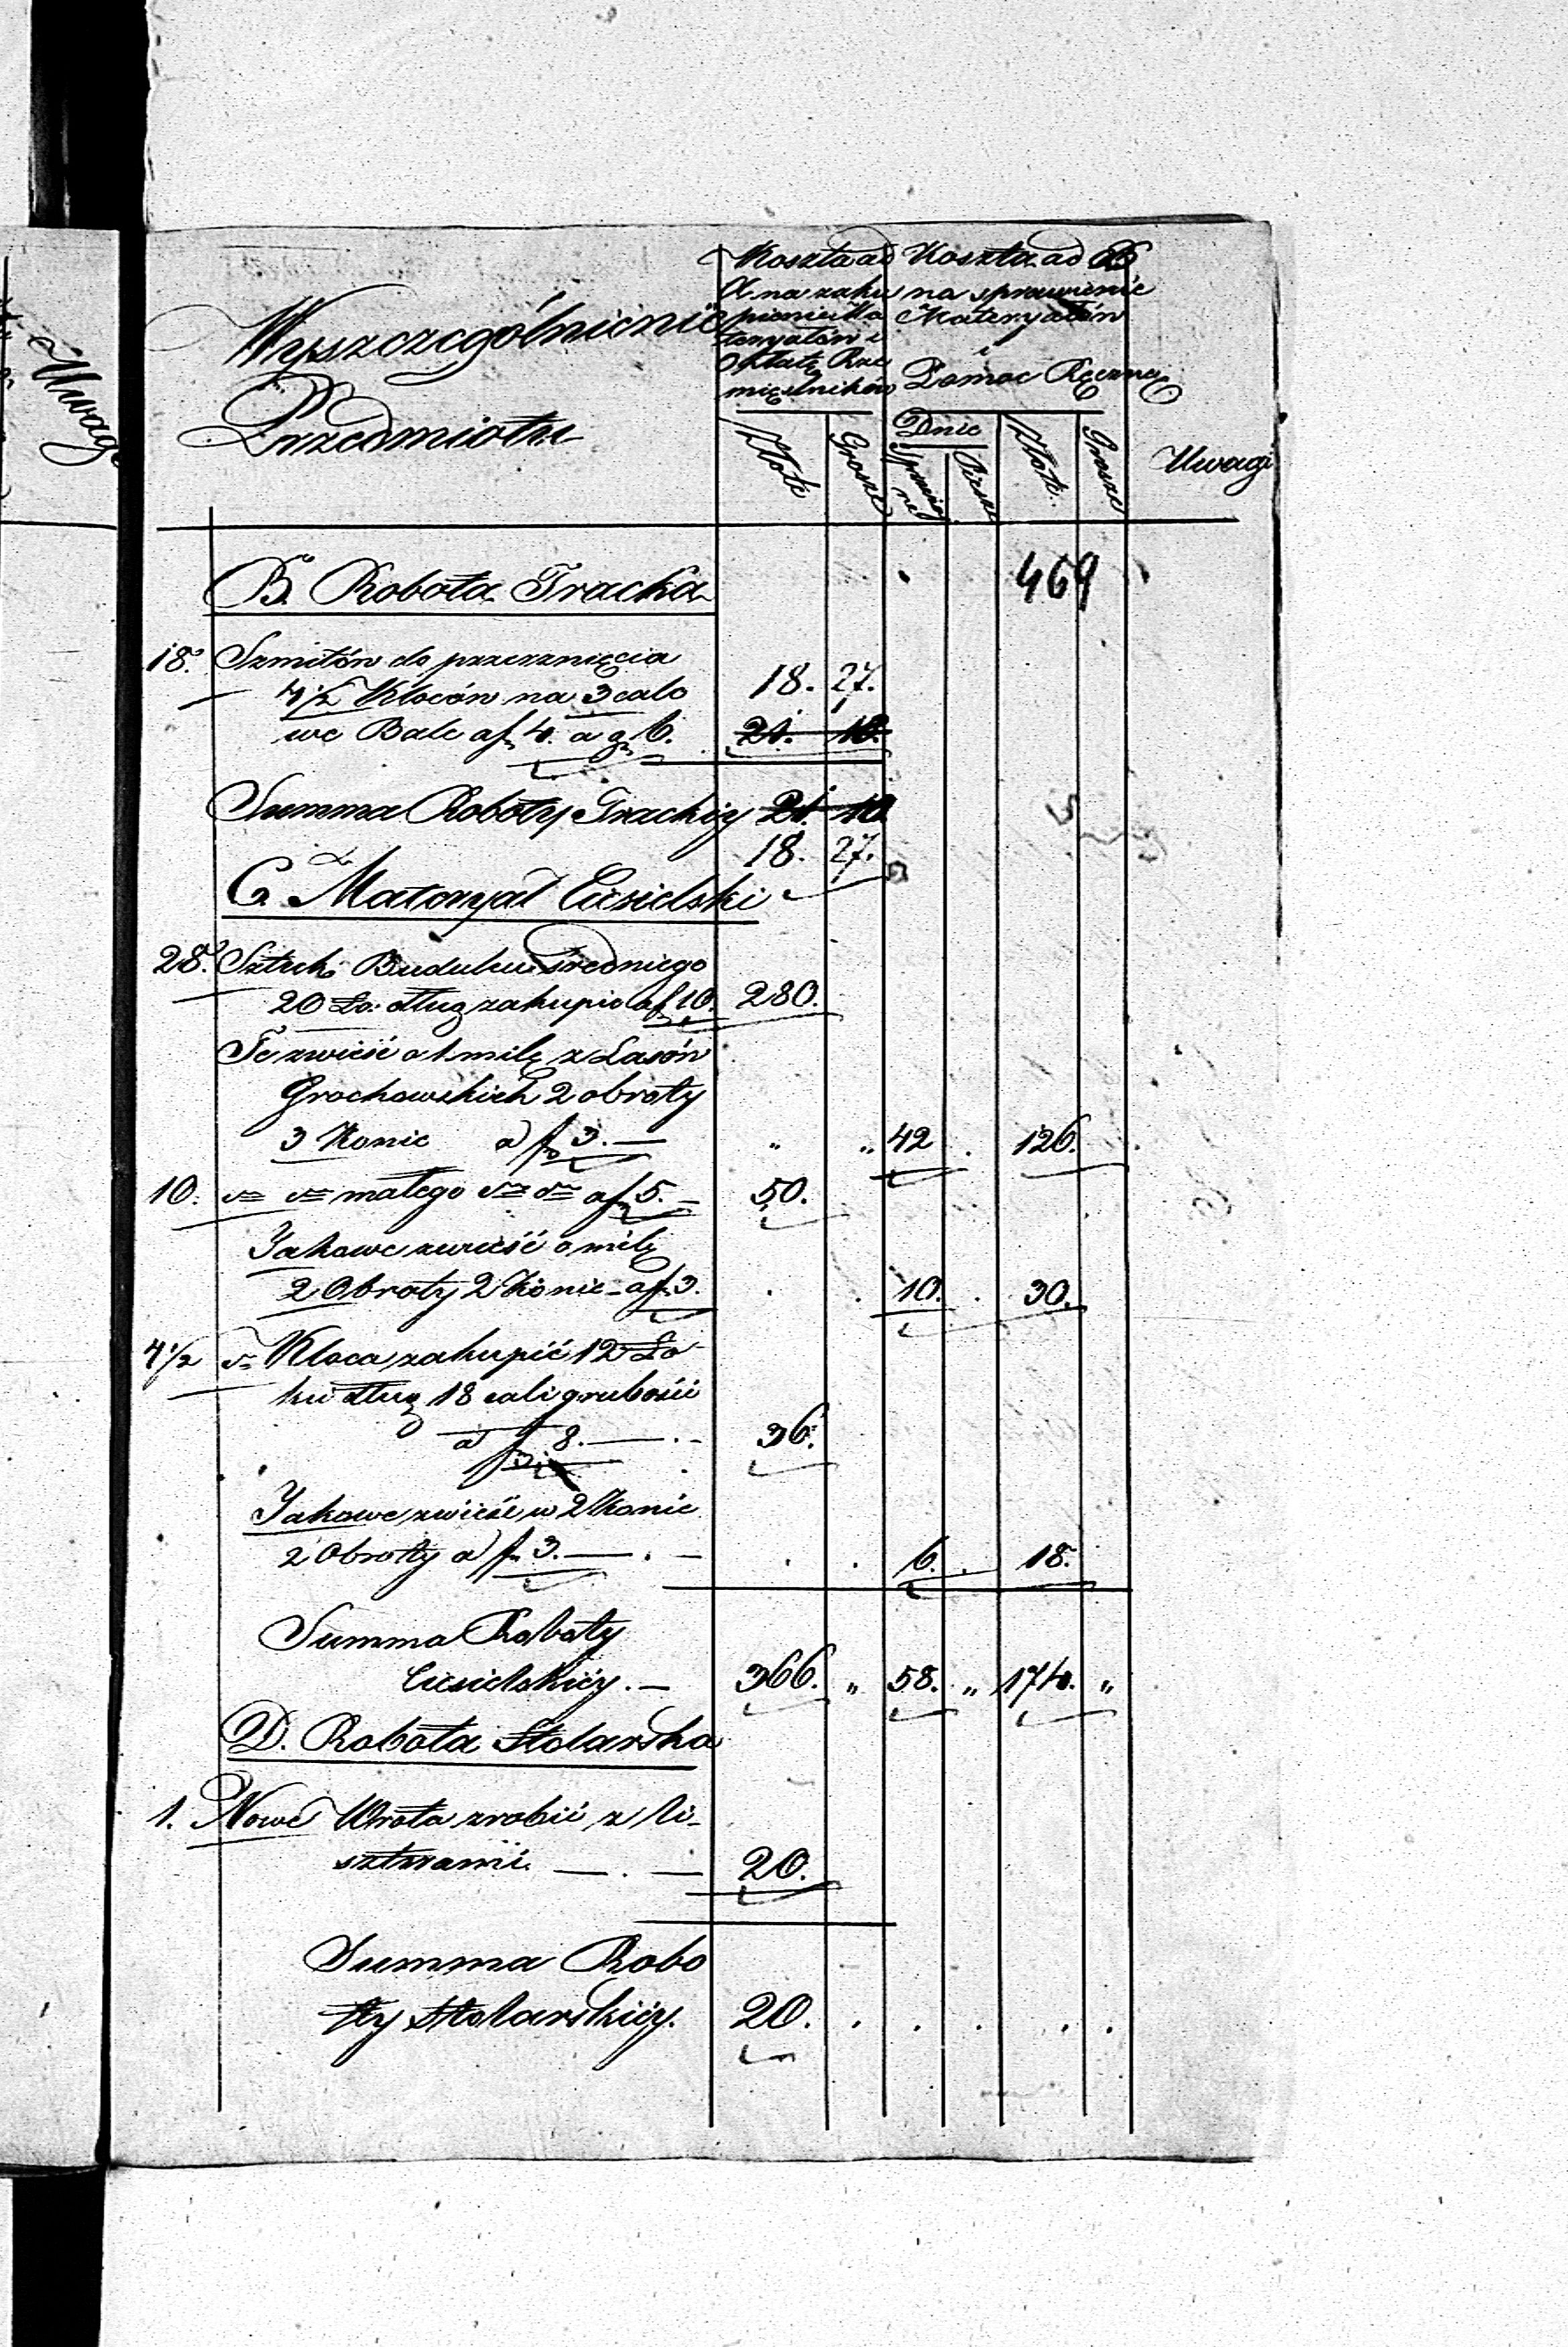 Uwagi
Wyszczególnienie
Przedmiotu
Koszta ad
A na zaku
pienie Ma
teryałów i
Płatę Rze
mieślników
Koszta ad B
na sprawienie
Materyałów
i
Pomoc Ręczną
Złote
Grosze
Dnie
Sprzężaj
ne
Piesze
Złote
Grosze
Uwagi
B. Robota Tracka
469
18. Szmitów do przerznięcia
4½ Kloców na 3 calo 18. 27.
we Bale a f 4. a g 6. 21. 18.
Summa Roboty Trackiey 21. 18
18. 27.
C. Materyał Ciesielski
28. Sztuk Budulcu średniego
20 Ło: dług zakupić a f 10. 280.
Te zwieść o 1 milę z Lasów
Grochowskich 2 obroty
3 Konie a f 3. — „ „ 42 . 126.
10. dto dto małego dto dto a f 5. — 50.
Jakowe zwieść o milę
2 Obroty 2 Konie a f 3. . . 10. . 30.
4½ dto Kloca zakupić 12 Ło
kci dług 18 cali grubości
a f 8. — . - 36.
Jakowe zwieść w 2 Konie
2 Obroty a f 3. — . — . . 6. . 18.
Summa Roboty
Ciesielskiey. — 366. „ 58. „ 174. „
D. Robota Stolarska
1. Nowe Wrota zrobić z li-
sztwami. — . — 20.
Summa Robo
ty Stolarskiey. 20. . . . . .